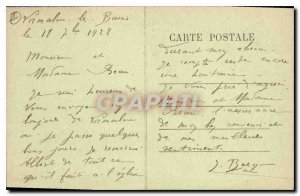 Lamalou les Bains
le 18 7bre 1928
CARTE POSTALE
Monsieur et
Madame Beau
Je suis heureux de
vous envoyer
de Lamalou
où je passe quelques
bons jours. Je remercie
Albert de tout ce
qu'il fait à l'église
durant mon absence.
Je compte rester encore
une huitaine.
Je vous prie
et Madame
Beau l'assurance
de mon bon souvenir et
de mes meilleurs
sentiments.
CARTPOSTAL